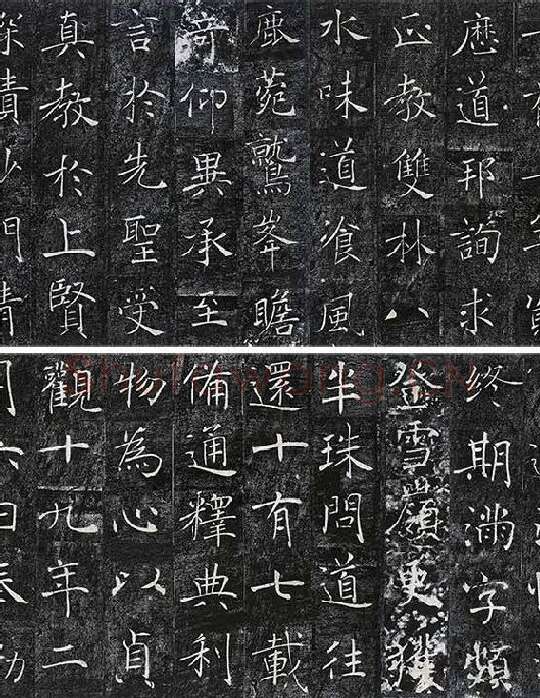 歷道邦詢求
正教雙林八
水味道飡風
鹿菀鷲峯瞻
奇仰異承至
言於先聖受
真教於上賢
探賾妙門精
終期滿字頻
登雪嶺更獲
半珠問道往
還十有七載
備通釋典利
物為心以貞
觀十九年二
月六日奉勑